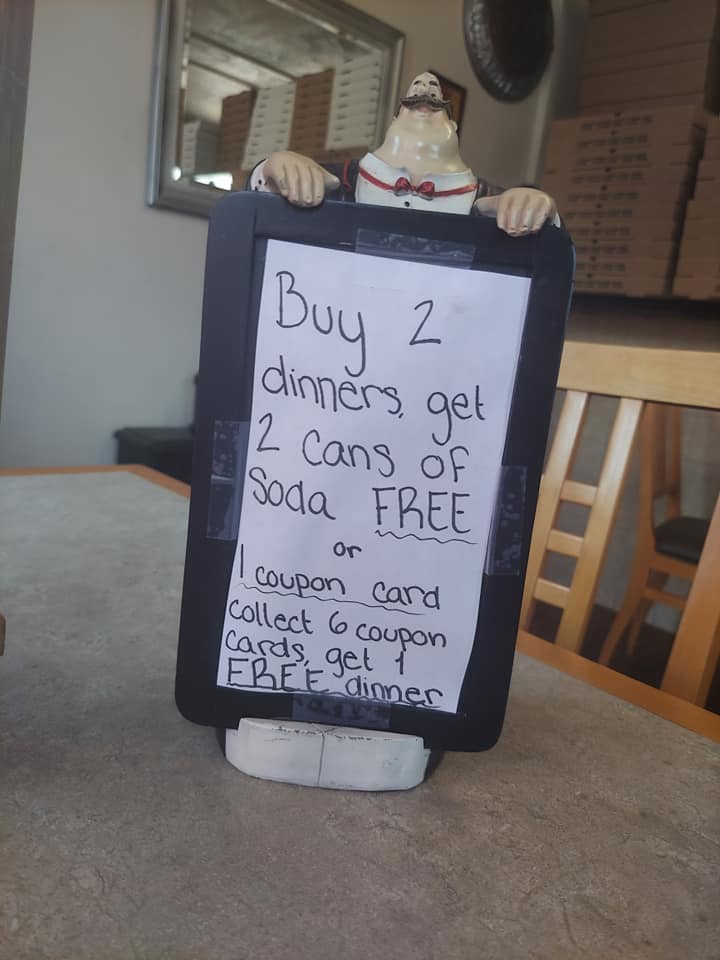 Buy 2
dinners, get
2 cans of
Soda FREE
or
1 coupon card
collect 6 coupon
cards, get 1
FREE dinner